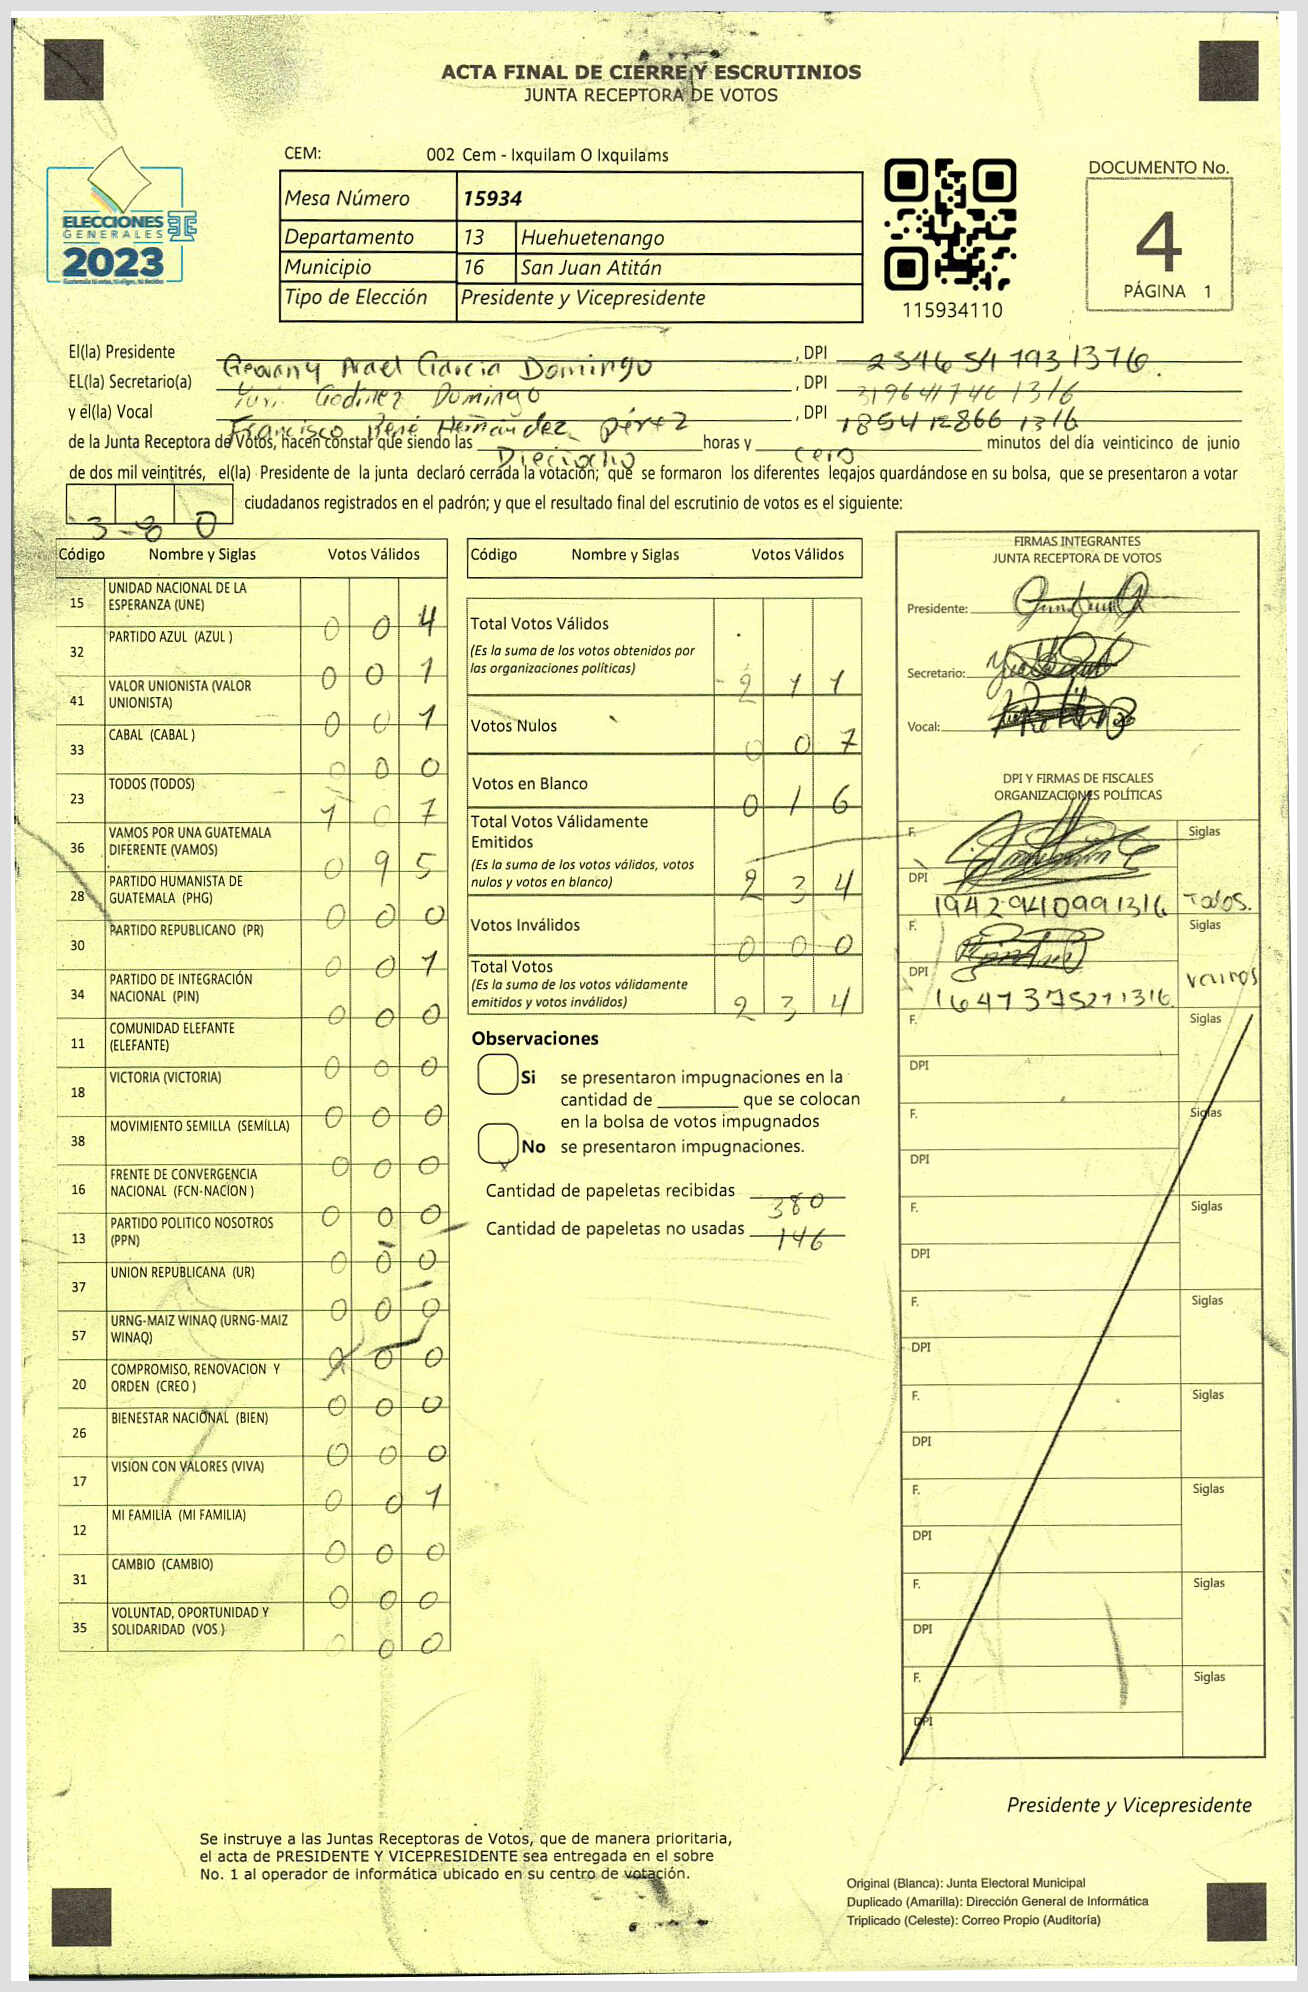 ACTA FINAL DE CIERRE Y ESCRUTINIOS
JUNTA RECEPTORA DE VOTOS
CEM: 002 Cem - Ixquilam O Ixquilams
ELECCIONES
GENERALES
2023
Mesa Número 15934
Departamento 13 Huehuetenango
Municipio 16 San Juan Atitán
Tipo de Elección Presidente y Vicepresidente
115934110
DOCUMENTO No.
4
PÁGINA 1
El(la) Presidente Geovany Arael García Domingo, DPI 2346 54 793 1316
EL(la) Secretario(a) Yuri Godinez Domingo, DPI 319641740 1316
y el(la) Vocal Francisco René Hernández pérez, DPI 1854 12866 1316
de la Junta Receptora de Votos, hacen constar que siendo las Dieciocho horas y cero minutos del día veinticinco de junio
de dos mil veintitrés, el(la) Presidente de la junta declaró cerrada la votación; que se formaron los diferentes legajos quardándose en su bolsa, que se presentaron a votar
3 8 0 ciudadanos registrados en el padrón; y que el resultado final del escrutinio de votos es el siguiente:
Código Nombre y Siglas Votos Válidos
15 UNIDAD NACIONAL DE LA ESPERANZA (UNE) 0 0 4
32 PARTIDO AZUL (AZUL ) 0 0 1
41 VALOR UNIONISTA (VALOR UNIONISTA) 0 0 1
33 CABAL (CABAL ) 0 0 0
23 TODOS (TODOS) 1 0 7
36 VAMOS POR UNA GUATEMALA DIFERENTE (VAMOS) 0 9 5
28 PARTIDO HUMANISTA DE GUATEMALA (PHG) 0 0 0
30 PARTIDO REPUBLICANO (PR) 0 0 1
34 PARTIDO DE INTEGRACIÓN NACIONAL (PIN) 0 0 0
11 COMUNIDAD ELEFANTE (ELEFANTE) 0 0 0
18 VICTORIA (VICTORIA) 0 0 0
38 MOVIMIENTO SEMILLA (SEMILLA) 0 0 0
16 FRENTE DE CONVERGENCIA NACIONAL (FCN-NACION ) 0 0 0
13 PARTIDO POLITICO NOSOTROS (PPN) 0 0 0
37 UNION REPUBLICANA (UR) 0 0 0
57 URNG-MAIZ WINAQ (URNG-MAIZ WINAQ) 0 0 0
20 COMPROMISO, RENOVACION Y ORDEN (CREO ) 0 0 0
26 BIENESTAR NACIONAL (BIEN) 0 0 0
17 VISION CON VALORES (VIVA) 0 0 1
12 MI FAMILIA (MI FAMILIA) 0 0 0
31 CAMBIO (CAMBIO) 0 0 0
35 VOLUNTAD, OPORTUNIDAD Y SOLIDARIDAD (VOS.) 0 0 0
Código Nombre y Siglas Votos Válidos
Total Votos Válidos
(Es la suma de los votos obtenidos por
las organizaciones políticas) 2 1 1
Votos Nulos 0 0 7
Votos en Blanco 0 1 6
Total Votos Válidamente
Emitidos
(Es la suma de los votos válidos, votos
nulos y votos en blanco) 2 3 4
Votos Inválidos 0 0 0
Total Votos
(Es la suma de los votos válidamente
emitidos y votos inválidos) 2 3 4
Observaciones
Si se presentaron impugnaciones en la
cantidad de ________ que se colocan
en la bolsa de votos impugnados
x No se presentaron impugnaciones.
Cantidad de papeletas recibidas 380
Cantidad de papeletas no usadas 146
FIRMAS INTEGRANTES
JUNTA RECEPTORA DE VOTOS
Presidente:
Secretario:
Vocal:
DPI Y FIRMAS DE FISCALES
ORGANIZACIONES POLÍTICAS
F. Siglas
DPI 1942941099 1316 Todos.
F. Siglas
DPI 1647375271316. vamos
F. Siglas
DPI
F. Siglas
DPI
F. Siglas
DPI
F. Siglas
DPI
F. Siglas
DPI
F. Siglas
DPI
F. Siglas
DPI
F. Siglas
DPI
Presidente y Vicepresidente
Se instruye a las Juntas Receptoras de Votos, que de manera prioritaria,
el acta de PRESIDENTE Y VICEPRESIDENTE sea entregada en el sobre
No. 1 al operador de informática ubicado en su centro de votación.
Original (Blanca): Junta Electoral Municipal
Duplicado (Amarilla): Dirección General de Informática
Triplicado (Celeste): Correo Propio (Auditoría)